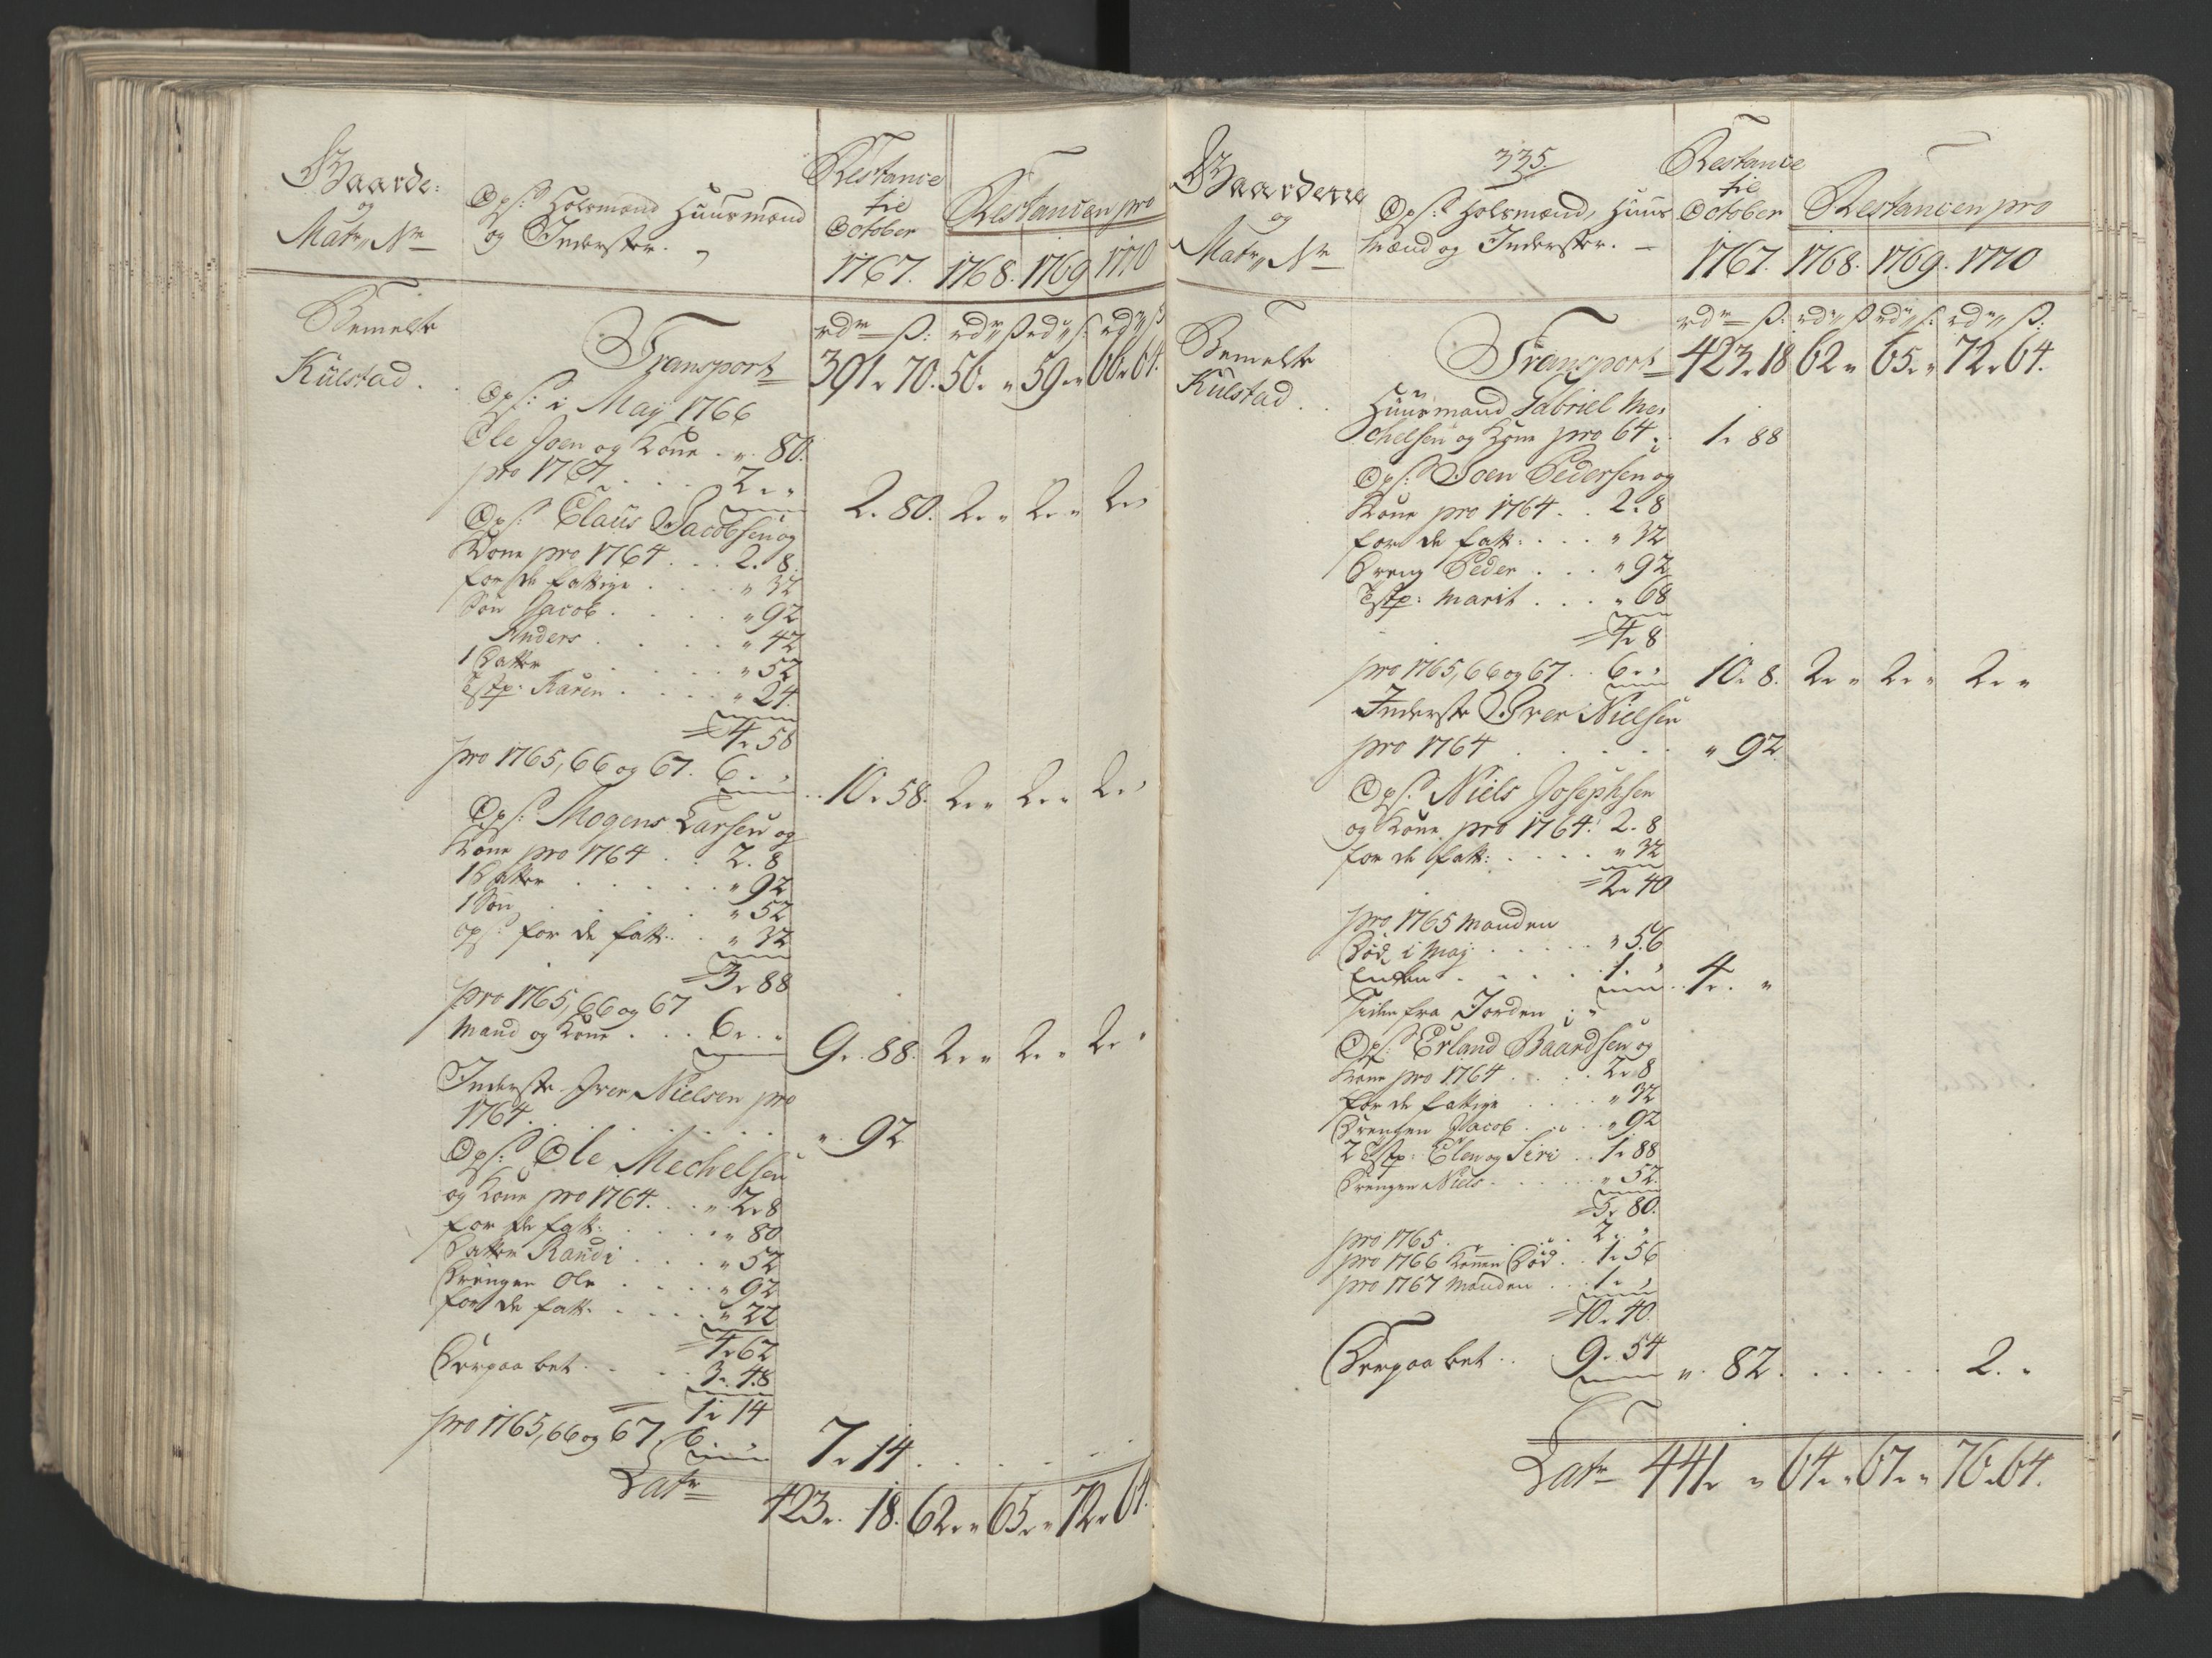 Gaarde:
og
Matr. Nr
Ops: Holsmænd Huusmænd
og Inderster.
Restance
til
October
1767.
Restancen pro
1768. 1769 1770
Bemelte
Kulstad.
rdr ß: rdr ß rdr ß: rdr ß
Transport 391 " 70. 56. " 59. " 66 " 64.
Ops: i Maj 1766
Ole Joen og Kone . " 80.
pro 1767 . . . 2 " "
2. 80. 2 " " 2 " " 2 "
Ops: Claus Jacobsen og
Kone pro 1764 . . . 2. 8.
for de fattige . . . " 32
Søn Jacob . . . " 92
Anders . . . " 42
1 Datter . . . " 52
Tstp: Karen . . . " 24.
= 4 " 58
pro 1765, 66 og 67. 6 " "
10 " 58. 2 " " 2 " " 2 "
Ops: Mogens Larsen og
Kone pro 1764 . . 2. 8
1 Datter . . . " 92
1 Søn . . . " 52
ops: for de fatt: . " 32
= 3 " 88
pro 1765, 66 og 67
Mand og Kone . . . 6 " "
9 " 88. 2 " " 2 " " 2 "
Inderste Iver Nielsen pro
1764 . . . " 92
Ops: Ole Mechelsen
og Kone pro 1764. . . " 2 " 8
for de fatt: . . . " 80
Datter Randi . . . " 52
Drengen Ole . . . " 92
for de fatt: . . . " 22
= 4 " 62
Derpaa bet . . . 3 " 48
= 1 " 14
pro 1765, 66 og 67, 6 " "
7 " 14 . . . . .
Latr 423 " 18. 62 " " 65 " " 72 " 64.
335.
Gaardene
og
Matr. Nr
Ops: Holsmænd, Huus
mænd og Inderster. —
Restance
til
October
1767.
Restancen pro
1768. 1769. 1770
Bemelte
Kulstad.
rdr ß: rdr ß rdr ß: rdr ß:
Transport 423 " 18 62 " 65 " " 72 " 64.
Huusmand Gabriel Me-
chelsen og Kone pro 64 . 1 " 88
Ops: Joen Pedersen og
Kone pro 1764 . . 2 " 8
for de fatt: . . . " 32
Dreng Peder . . . " 92
Tstp: Marit . . . " 68
= 4 " 8
pro 1765, 66 og 67 . . 6 " "
10 " 8. 2 " " 2 " " 2 " "
Inderste Iver Nielsen
pro 1764 . . . " 92
Ops: Niels Josephsen
og Kone pro 1764: 2. 8
for de fatt: . . . " 32
= 2 " 40
pro 1765 Manden
Død i Maj . . . " 56
Enken . . . 1. "
4 " "
siden fra Jorden
Ops: Erland Baardsen og
Kone pro 1764 . . . 2 " 8
for de fattige . . . " 32
Drengen Jacob . . . " 92
2 Tstp: Elen og Siri . . 1 " 88
Drengen Niels . . . " 52.
= 5 " 80.
pro 1765 . . . 2 " "
pro 1766 Konen Død . . 1 " 56
pro 1767 Manden . . . 1 " "
= 10 " 40.
Derpaa bet . . 9 " 54
" 82. . . . . . 2. "
Latr 441 " " 64 " " 67 " " 76 " 64.